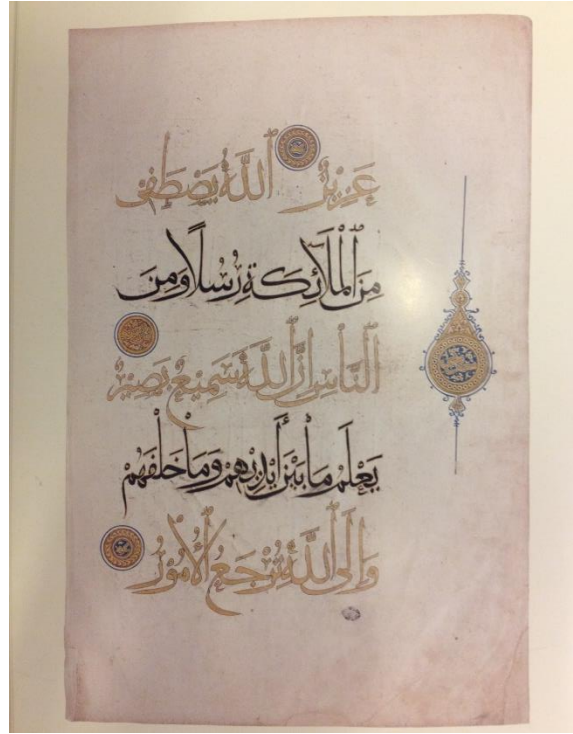 عَزِيزٌ اللَّهُ يَصْطَفِي
مِنَ الْمَلَائِكَةِ رُسُلًا وَمِنَ
النَّاسِ إِنَّ اللَّهَ سَمِيعٌ بَصِيرٌ
يَعْلَمُ مَا بَيْنَ أَيْدِيهِمْ وَمَا خَلْفَهُمْ
وَإِلَى اللَّهِ تُرْجَعُ الْأُمُورُ